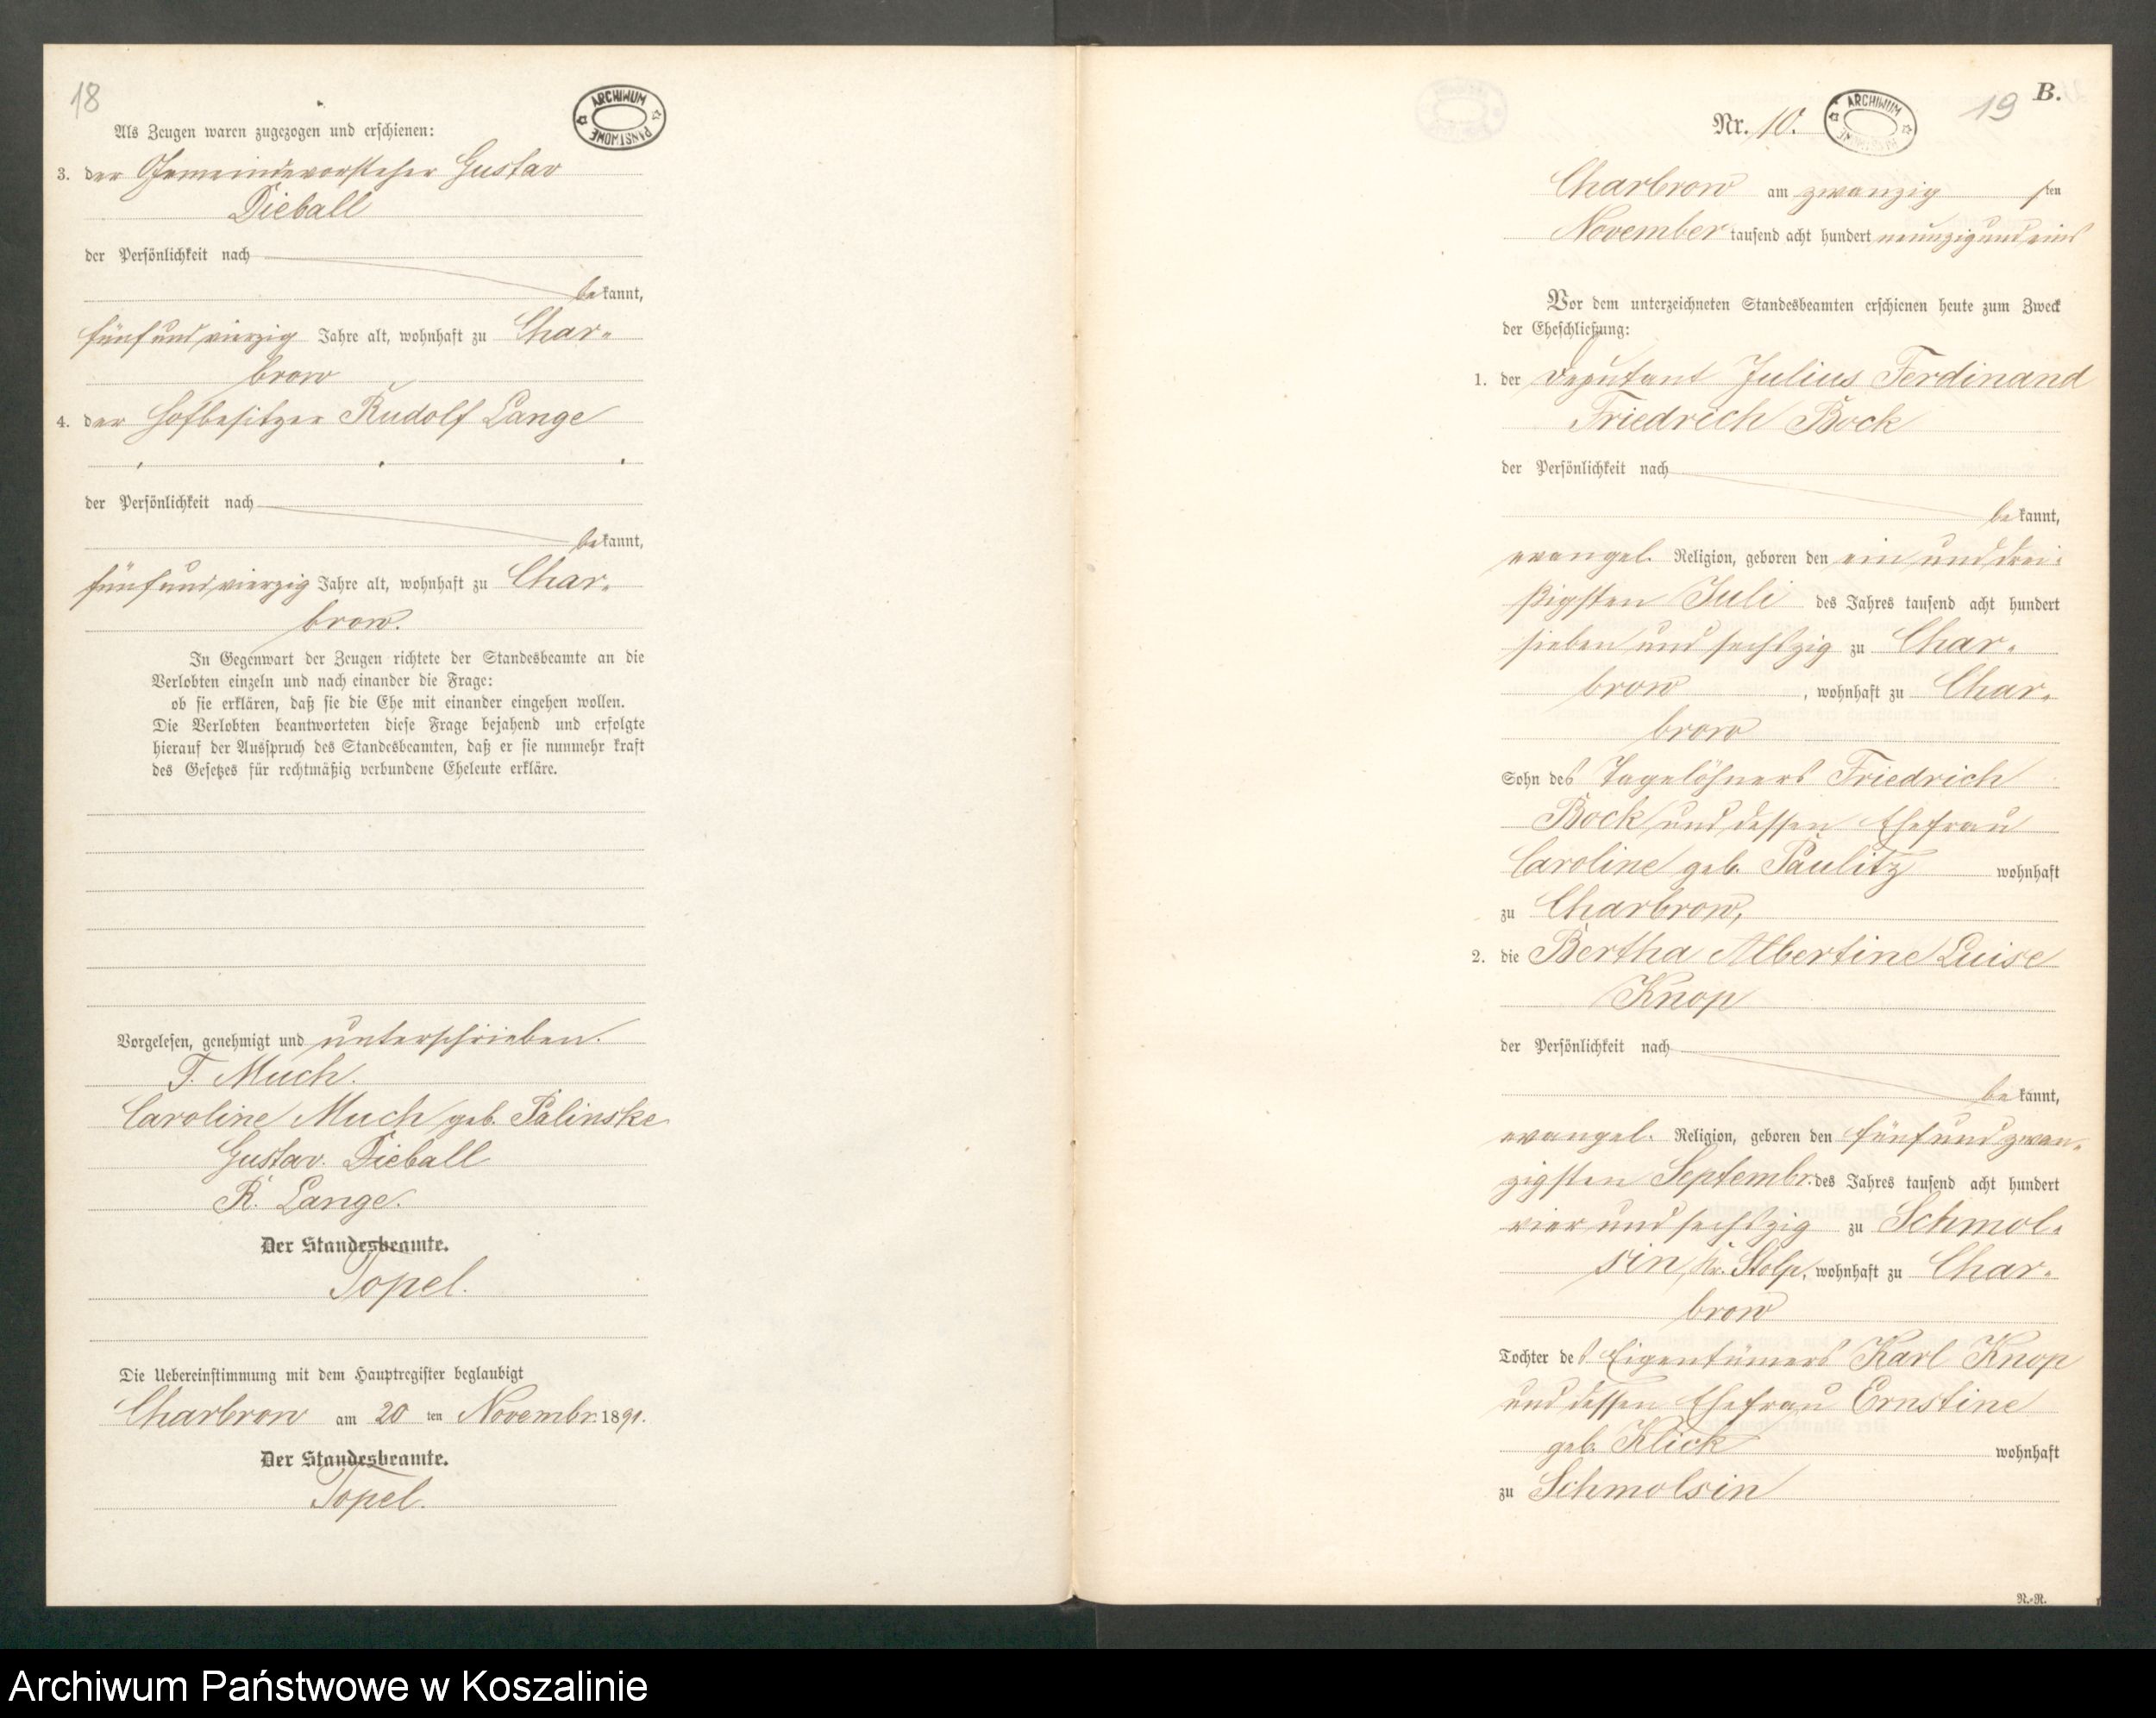 18
ARCHIWUM PAŃSTWOWE
Als Zeugen waren zugezogen und erschienen:
3. der Gemeindevorsteher Gustav
Dieball
der Persönlichkeit nach
bekannt,
fünf und vierzig Jahre alt, wohnhaft zu Char-
brow
4. der Hofbesitzer Rudolf Lange
der Persönlichkeit nach
bekannt,
fünf und vierzig Jahre alt, wohnhaft zu Char-
brow.
In Gegenwart der Zeugen richtete der Standesbeamte an die
Verlobten einzeln und nach einander die Frage:
ob sie erklären, daß sie die Ehe mit einander eingehen wollen.
Die Verlobten beantworteten diese Frage bejahend und erfolgte
hierauf der Ausspruch des Standesbeamten, daß er sie nunmehr kraft
des Gesetzes für rechtmäßig verbundene Eheleute erkläre.
Vorgelesen, genehmigt und unterschrieben.
T. Much.
Caroline Much geb. Palinske
Gustav. Dieball
R. Lange.
Der Standesbeamte.
Topel.
Die Uebereinstimmung mit dem Hauptregister beglaubigt
Charbrow am 20 ten Novembr. 1891.
Der Standesbeamte.
Topel.
B.
19
Nr. 10.
ARCHIWUM PAŃSTWOWE
Charbrow am zwanzigsten
November tausend acht hundert neunzig und eins
Vor dem unterzeichneten Standesbeamten erschienen heute zum Zweck
der Eheschließung:
1. der Deputant Julius Ferdinand
Friedrich Bock
der Persönlichkeit nach
bekannt,
evangel. Religion, geboren den ein und drei-
ßigsten Juli des Jahres tausend acht hundert
sieben und sechszig zu Char-
brow, wohnhaft zu Char-
brow
Sohn des Tagelöhners Friedrich
Bock und dessen Ehefrau
Caroline geb. Paulitz wohnhaft
zu Charbrow,
2. die Bertha Albertine Luise
Knop
der Persönlichkeit nach
bekannt,
evangel. Religion, geboren den fünf und zwan-
zigsten Septembr. des Jahres tausend acht hundert
vier und sechszig zu Schmol-
sin, Kr. Stolp, wohnhaft zu Char-
brow
Tochter des Eigentümers Karl Knop
und dessen Ehefrau Ernstine
geb. Klick wohnhaft
zu Schmolsin
N.-N.
Archiwum Państwowe w Koszalinie